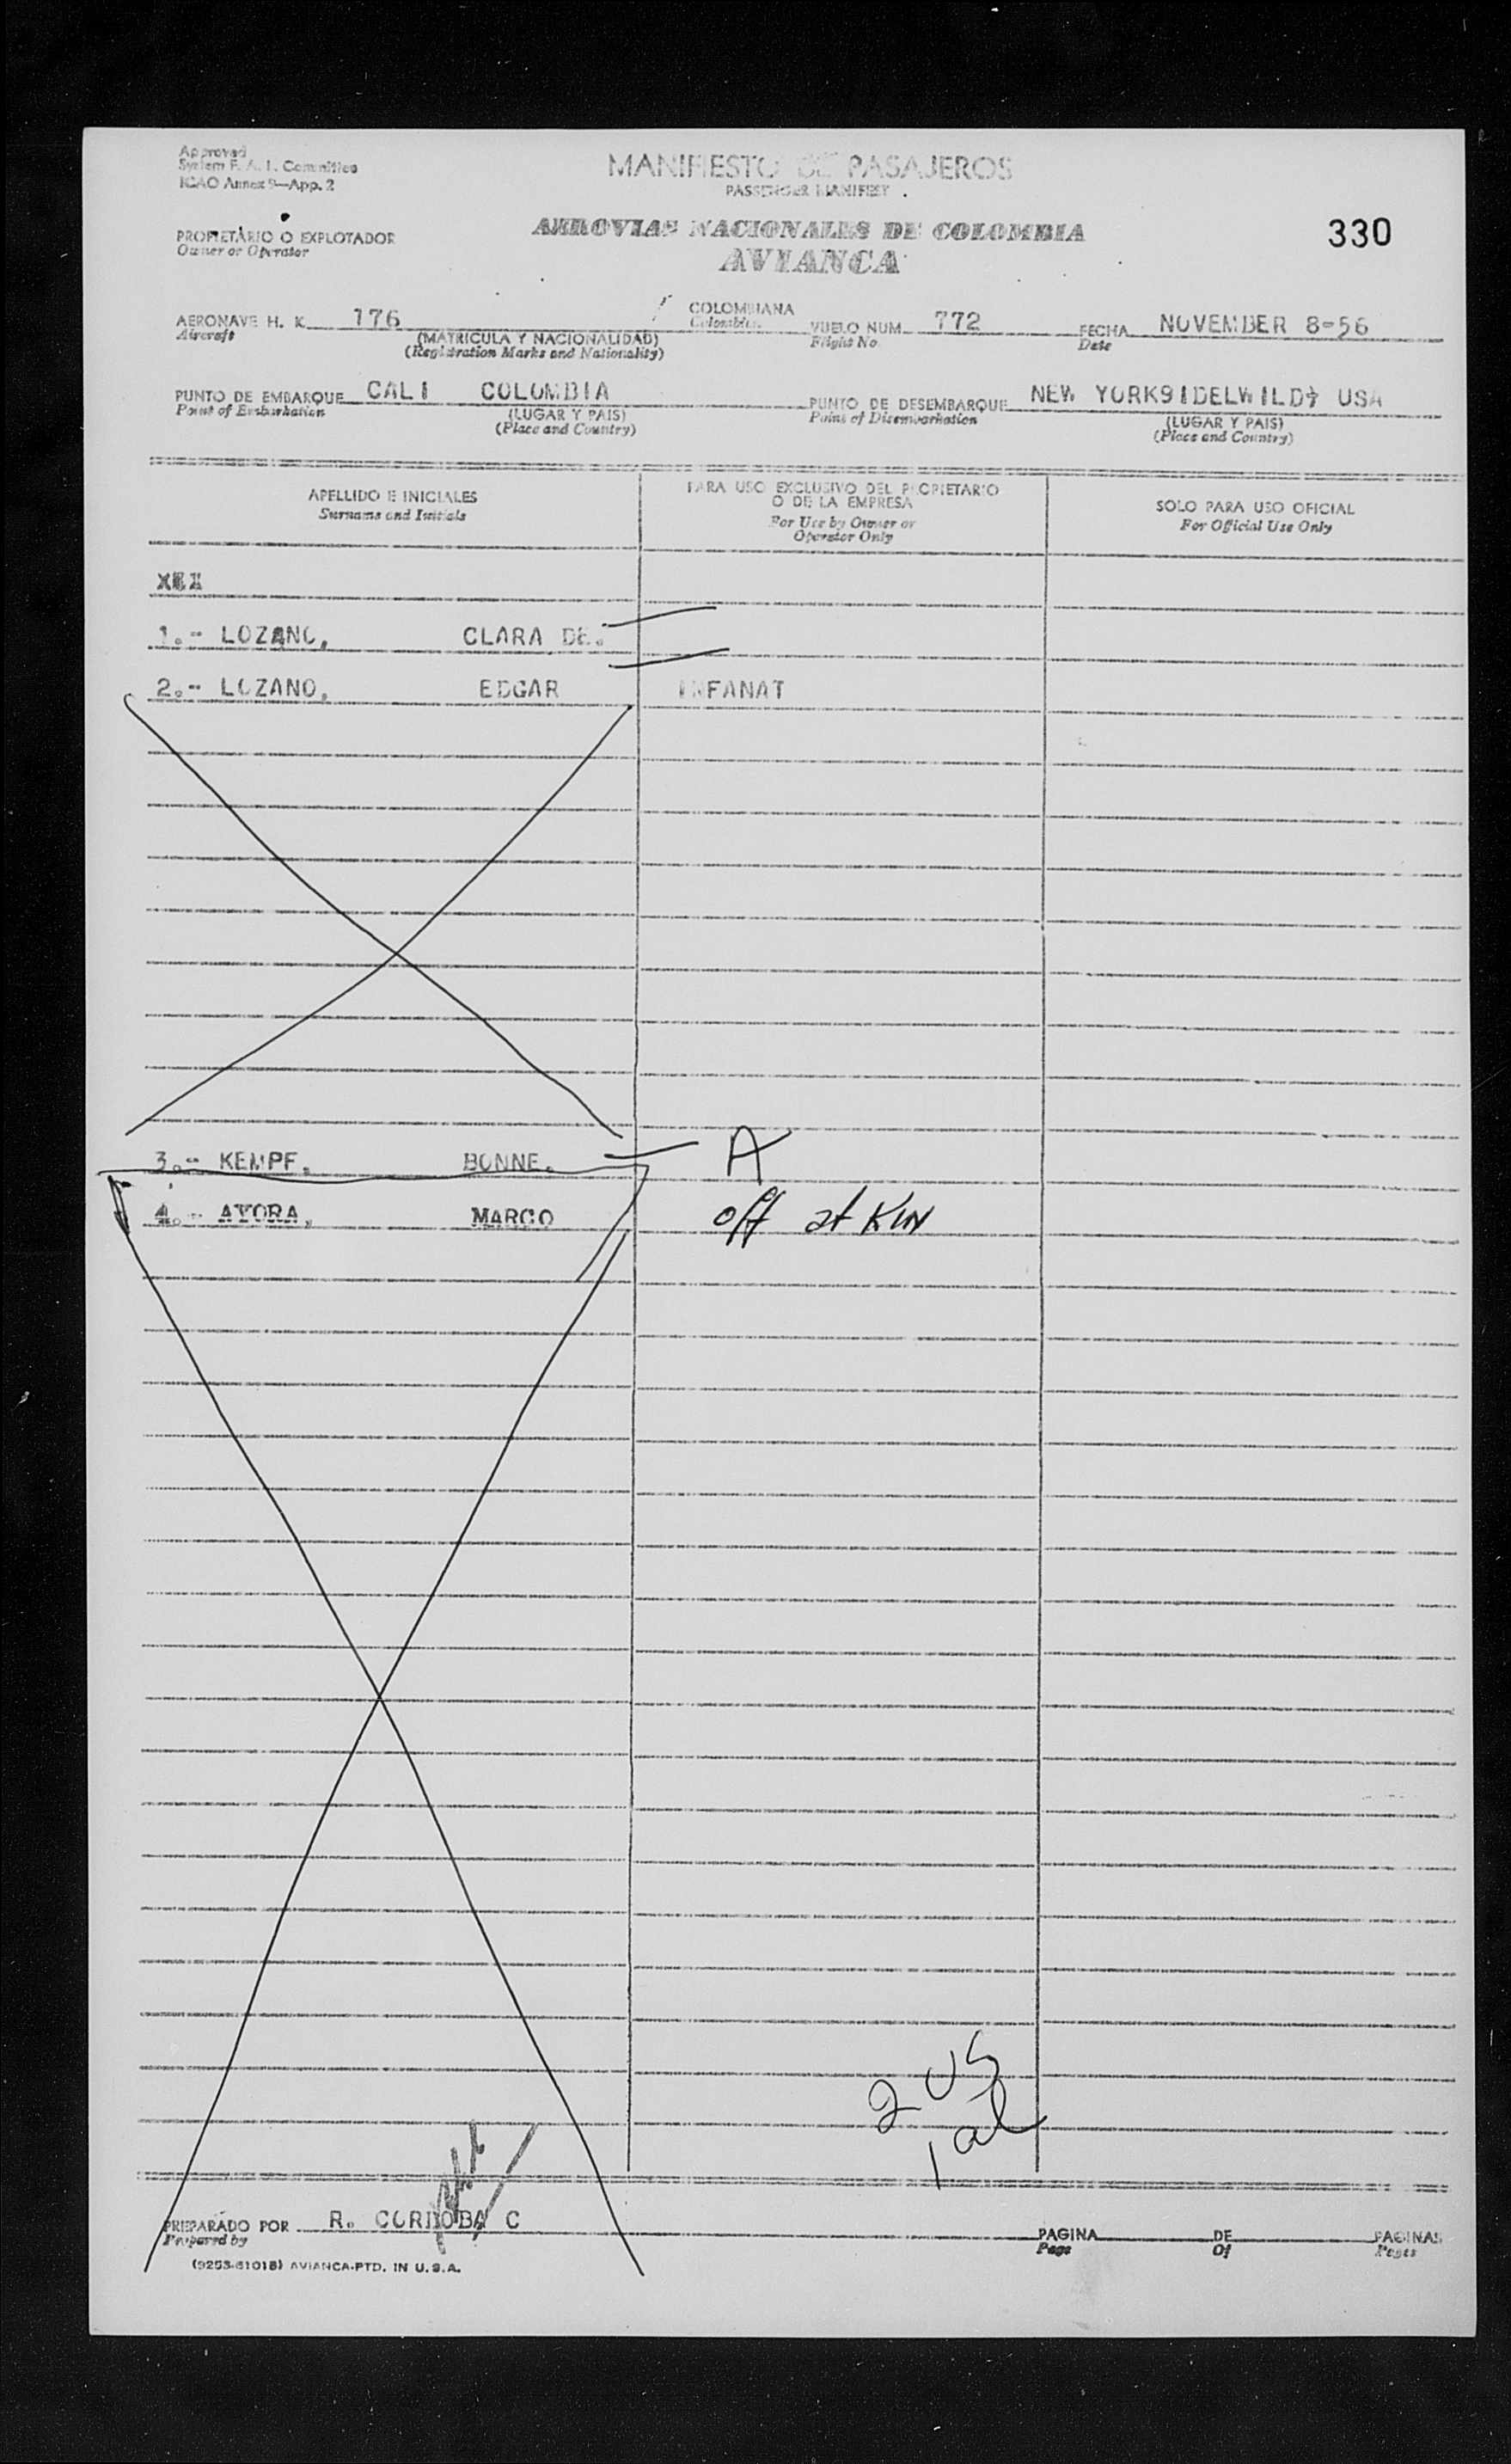 Approved
System F. A. I. Committee
ICAO Annex 9—App. 2
MANIFIESTO DE PASAJEROS
PASSENGER MANIFEST
PROPIETARIO O EXPLOTADOR
Owner or Operator
AEROVIAS NACIONALES DE COLOMBIA
AVIANCA
330
AERONAVE H. K. 176 COLOMBIANA VUELO NUM. 772 FECHA NOVEMBER 8-56
Aircraft (MATRICULA Y NACIONALIDAD) Colombian Flight No. Date
(Registration Marks and Nationality)
PUNTO DE EMBARQUE CALI COLOMBIA PUNTO DE DESEMBARQUE NEW YORK9IDELWILD) USA
Point of Embarkation (LUGAR Y PAIS) Point of Disembarkation (LUGAR Y PAIS)
(Place and Country) (Place and Country)
APELLIDO E INICIALES
Surname and Initials
PARA USO EXCLUSIVO DEL PROPIETARIO
O DE LA EMPRESA
For Use by Owner or
Operator Only
SOLO PARA USO OFICIAL
For Official Use Only
1.- LOZANO, CLARA DE.
2.- LOZANO, EDGAR INFANAT
3.- KEMPF. BONNE. A
4.- AYORA, MARCO off at KIN
2 US
1 al
PREPARADO POR R. CORDOBA C PAGINA DE PAGINAS
Prepared by Page Of Pages
(9253-61018) AVIANCA-PTD. IN U.S.A.